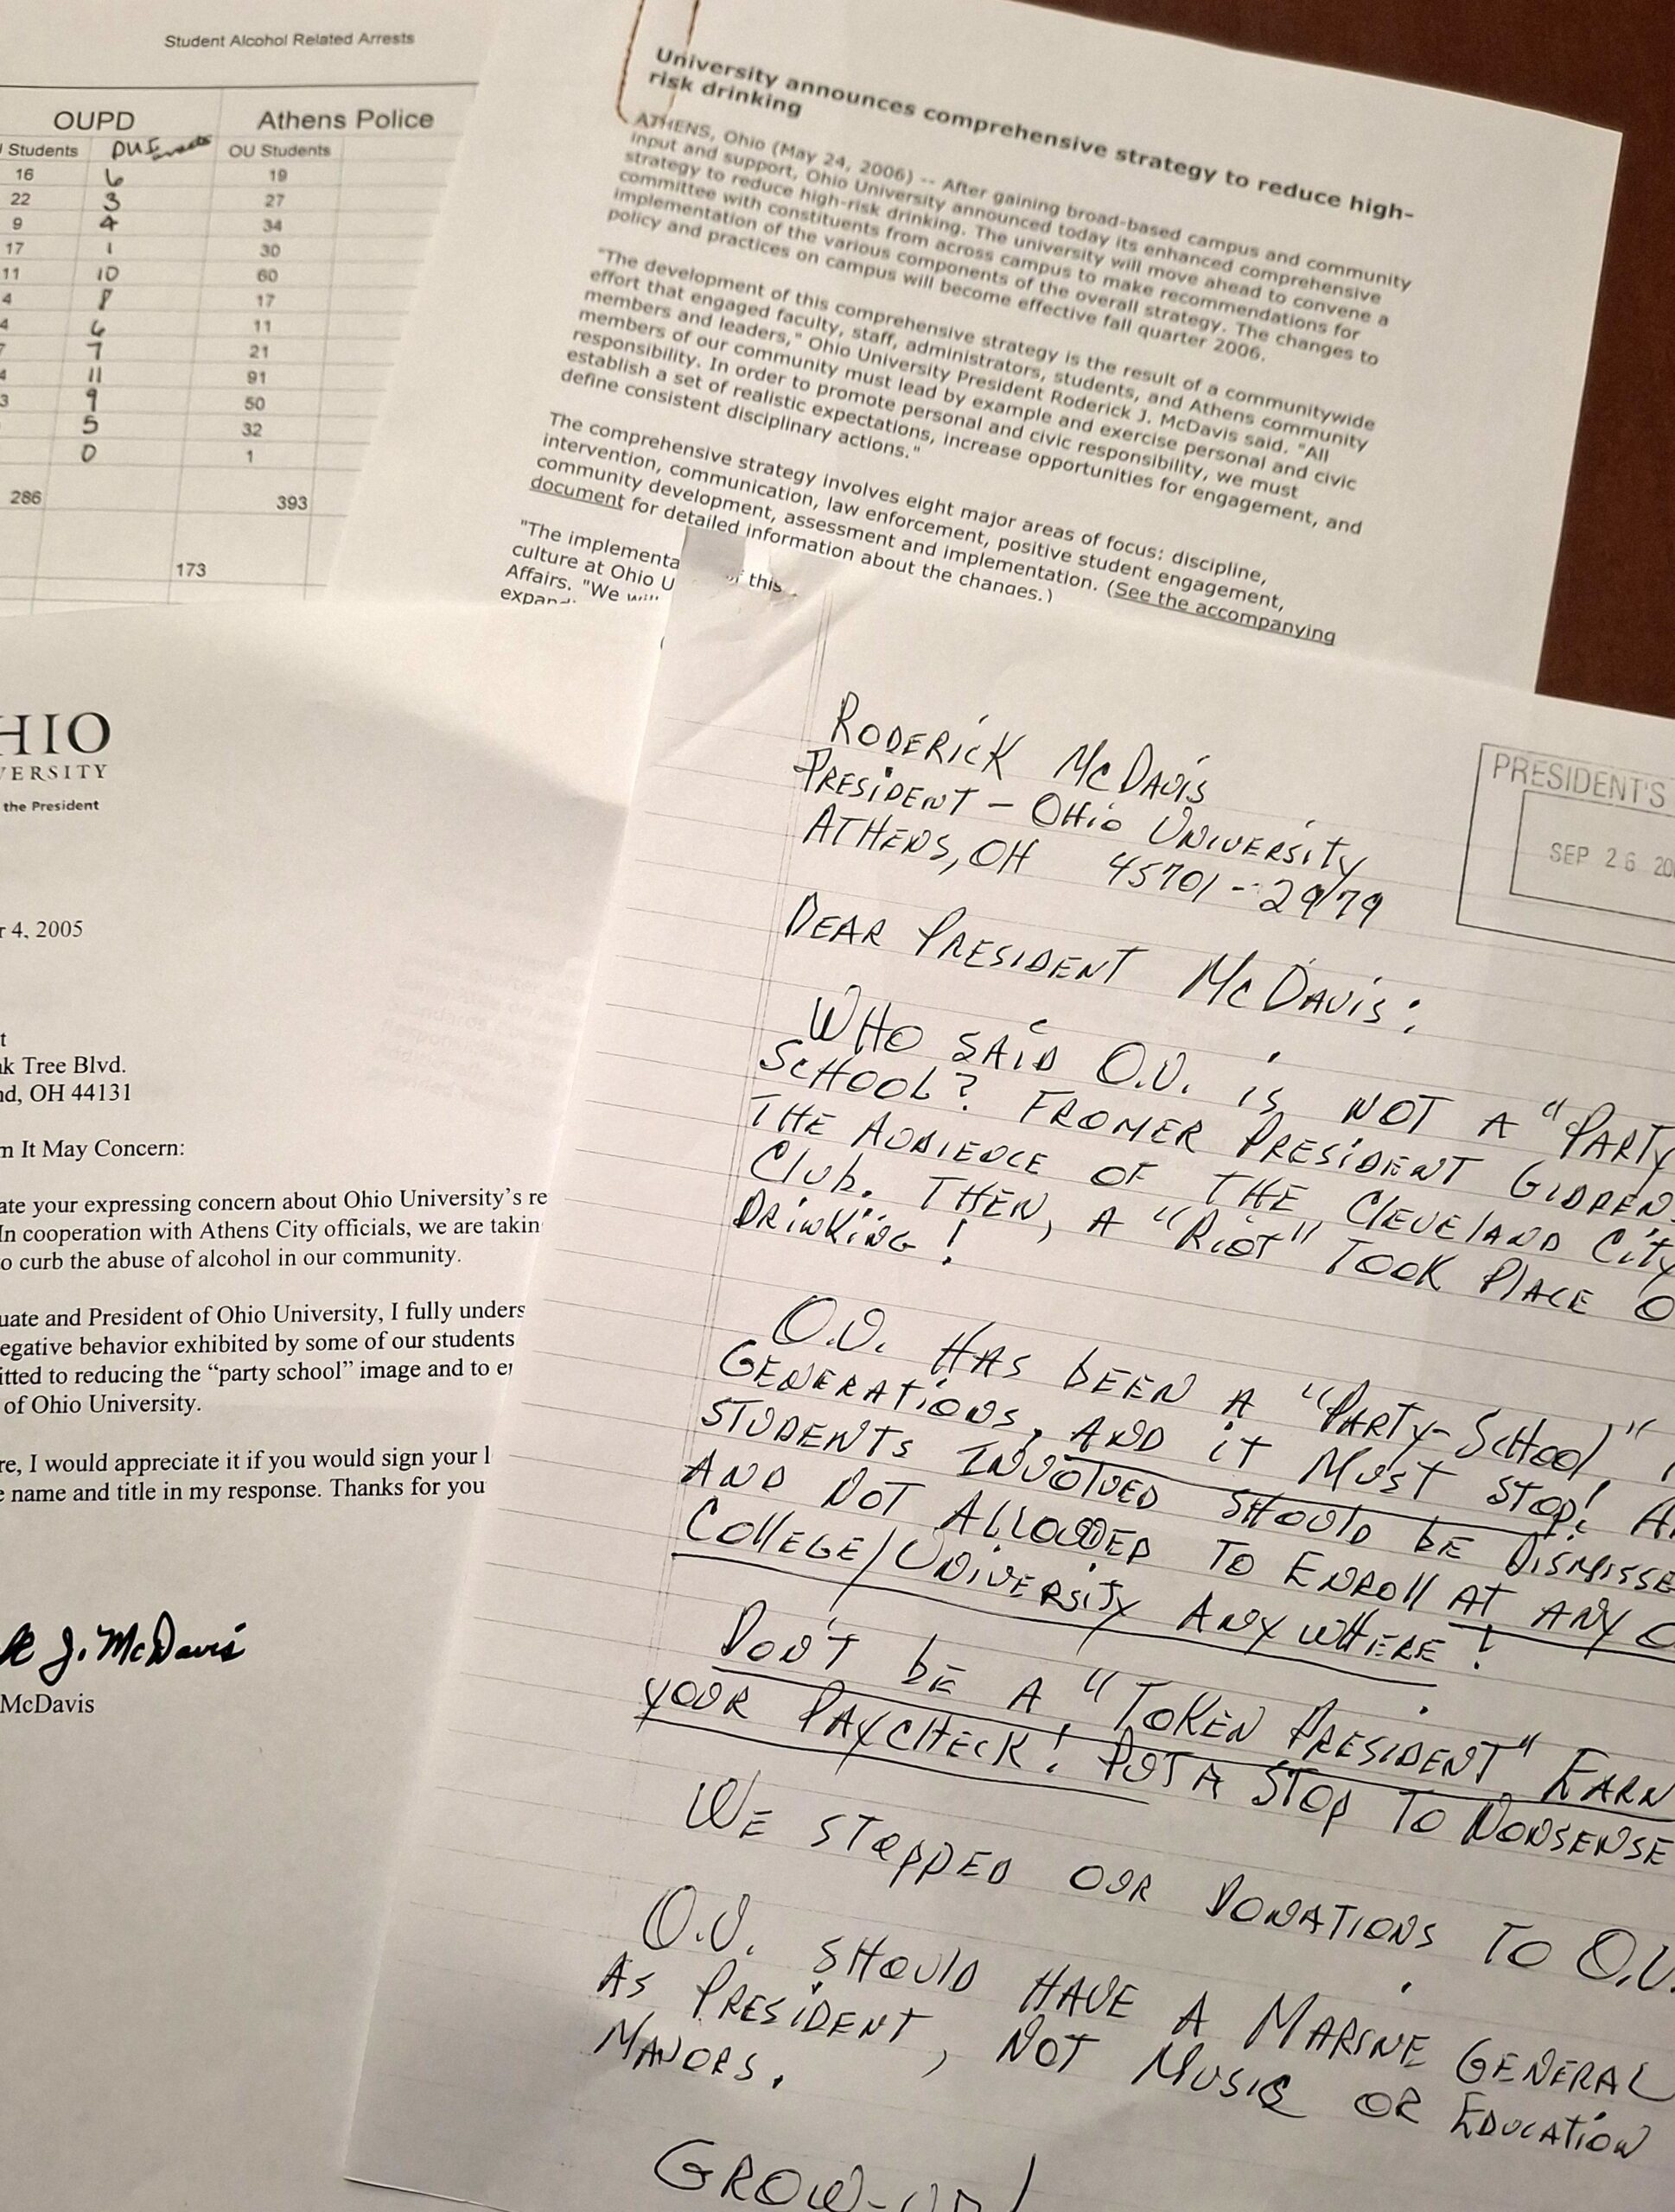 Student Alcohol Related Arrests
OUPD Athens Police
Students OU Students
16 6 19
22 3 27
9 4 34
17 1 30
11 10 60
4 8 17
4 6 11
7 21
4 11 91
3 9 50
5 32
0 1
286 393
173
University announces comprehensive strategy to reduce high-
risk drinking
ATHENS, Ohio (May 24, 2006) -- After gaining broad-based campus and community
input and support, Ohio University announced today its enhanced comprehensive
strategy to reduce high-risk drinking. The university will move ahead to convene a
committee with constituents from across campus to make recommendations for
implementation of the various components of the overall strategy. The changes to
policy and practices on campus will become effective fall quarter 2006.
"The development of this comprehensive strategy is the result of a communitywide
effort that engaged faculty, staff, administrators, students, and Athens community
members and leaders," Ohio University President Roderick J. McDavis said. "All
members of our community must lead by example and exercise personal and civic
responsibility. In order to promote personal and civic responsibility, we must
establish a set of realistic expectations, increase opportunities for engagement, and
define consistent disciplinary actions."
The comprehensive strategy involves eight major areas of focus: discipline,
intervention, communication, law enforcement, positive student engagement,
community development, assessment and implementation. (See the accompanying
document for detailed information about the changes.)
"The implementa this
culture at Ohio U
Affairs. "We
HIO
VERSITY
the President
r 4, 2005
t
k Tree Blvd.
nd, OH 44131
m It May Concern:
ate your expressing concern about Ohio University's re
In cooperation with Athens City officials, we are takin
o curb the abuse of alcohol in our community.
uate and President of Ohio University, I fully unders
egative behavior exhibited by some of our students
itted to reducing the “party school” image and to e
of Ohio University.
re, I would appreciate it if you would sign your l
e name and title in my response. Thanks for you
J. McDavis
McDavis
PRESIDENT'S
SEP 26 20
RODERICK MCDAVIS
PRESIDENT - OHIO UNIVERSITY
ATHENS, OH 45701-2979
DEAR PRESIDENT MCDAVIS:
WHO SAID O.U. IS NOT A "PARTY
SCHOOL? FROMER PRESIDENT GLIDDEN
THE AUDIENCE OF THE CLEVELAND CITY
Club. THEN, A "RIOT" TOOK PLACE O
DRINKING!
O.U. HAS BEEN A "PARTY-SCHOOL"
GENERATIONS, AND IT MUST STOP! A
STUDENTS INVOLVED SHOULD BE DISMISSE
AND NOT ALLOWED TO ENROLL AT ANY O
COLLEGE/UNIVERSITY ANY WHERE!
DON'T BE A "TOKEN PRESIDENT" EARN
YOUR PAYCHECK! PUT A STOP TO NONSENSE
WE STOPPED OUR DONATIONS TO O.U.
O.U. SHOULD HAVE A MARINE GENERAL
AS PRESIDENT, NOT MUSIC OR EDUCATION
MAJORS.
GROW-UP!